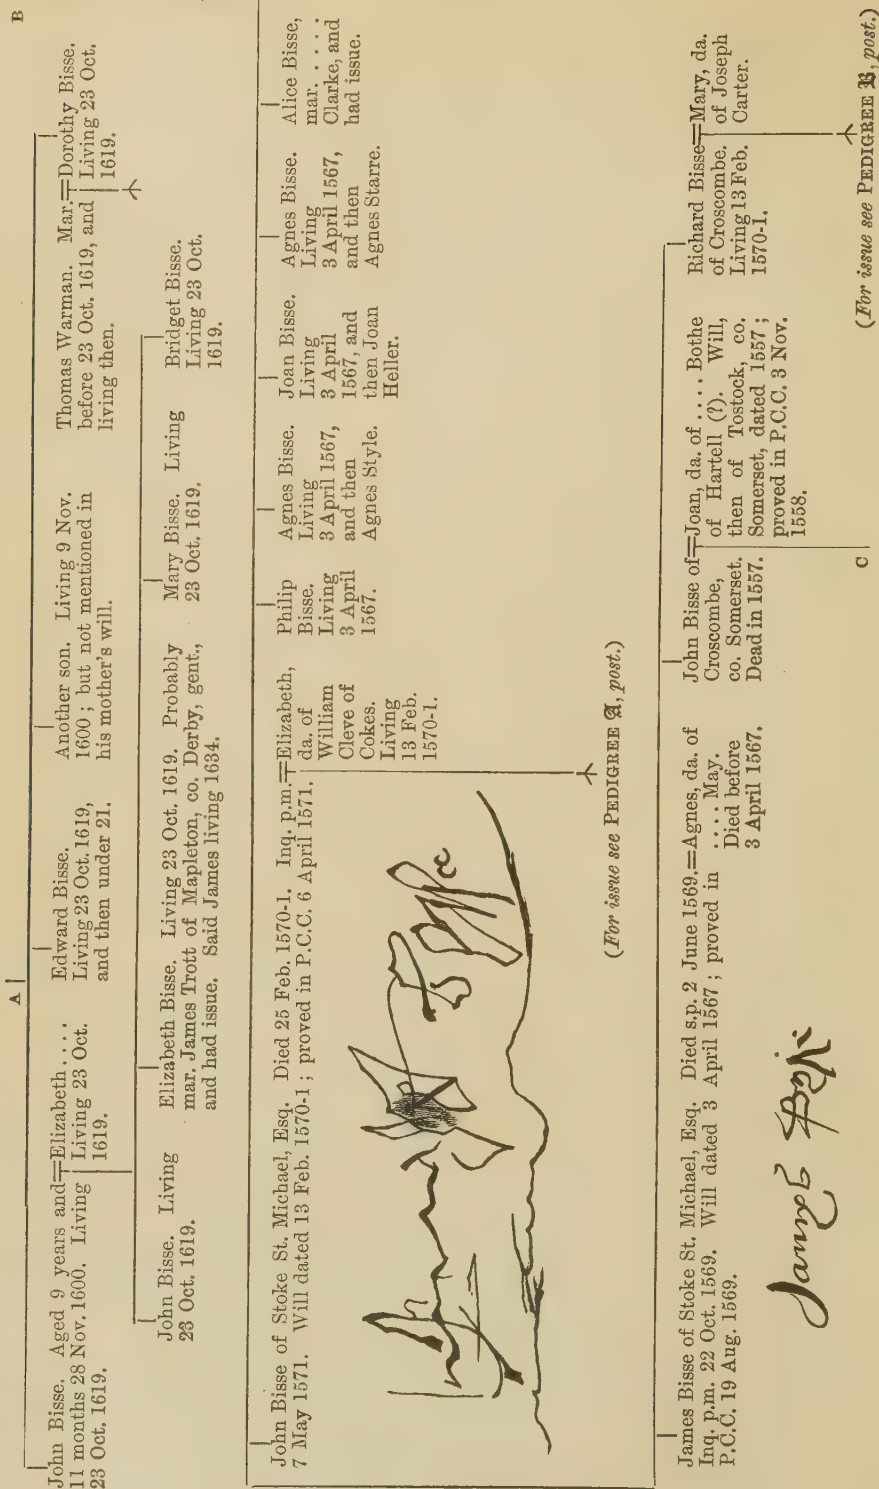 A
B
John Bisse. Aged 9 years and=Elizabeth ....
11 months 28 Nov. 1600. Living
23 Oct. 1619.
Living 23 Oct.
1619.
Edward Bisse.
Living 23 Oct. 1619,
and then under 21.
Another son. Living 9 Nov.
1600; but not mentioned in
his mother's will.
Thomas Warman. Mar.=Dorothy Bisse.
before 23 Oct. 1619, and
living then.
Living 23 Oct.
1619.
John Bisse. Living
23 Oct. 1619.
Elizabeth Bisse. Living 23 Oct. 1619. Probably
mar. James Trott of Mapleton, co. Derby, gent.,
and had issue. Said James living 1634.
Mary Bisse. Living
23 Oct. 1619.
Bridget Bisse.
Living 23 Oct.
1619.
John Bisse of Stoke St. Michael, Esq. Died 25 Feb. 1570-1. Inq. p.m.=Elizabeth,
7 May 1571. Will dated 13 Feb. 1570-1; proved in P.C.C. 6 April 1571.
da. of
William
Cleve of
Cokes.
Living
13 Feb.
1570-1.
Philip
Bisse.
Living
3 April
1567.
Agnes Bisse.
Living
3 April 1567,
and then
Agnes Style.
Joan Bisse.
Living
3 April
1567, and
then Joan
Heller.
Agnes Bisse.
Living
3 April 1567,
and then
Agnes Starre.
Alice Bisse,
mar. .....
Clarke, and
had issue.
(For issue see PEDIGREE A, post.)
James Bisse of Stoke St. Michael, Esq. Died s.p. 2 June 1569.=Agnes, da. of
Inq. p.m. 22 Oct. 1569. Will dated 3 April 1567; proved in
P.C.C. 19 Aug. 1569.
.... May.
Died before
3 April 1567.
John Bisse of=Joan, da. of .... Bothe
Croscombe,
co. Somerset.
Dead in 1557.
of Hartell (?). Will,
then of Tostock, co.
Somerset, dated 1557;
proved in P.C.C. 3 Nov.
1558.
Richard Bisse=Mary, da.
of Croscombe.
Living 13 Feb.
1570-1.
of Joseph
Carter.
James
C
(For issue see PEDIGREE B, post.)